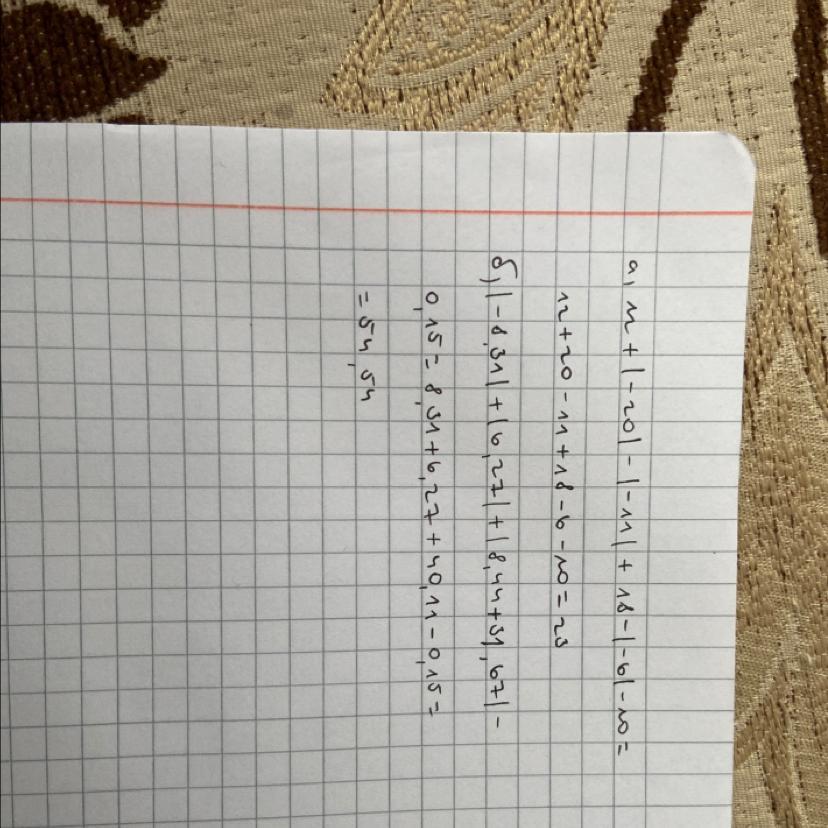 а, 12 + |-20| - |-11| + 18 - |-6| - 10 =
12+20-11+18-6-10=23
б, |-8,31| + |6,27| + |8,44+31,67| -
0,15 = 8,31+6,27+40,11-0,15=
= 54,54